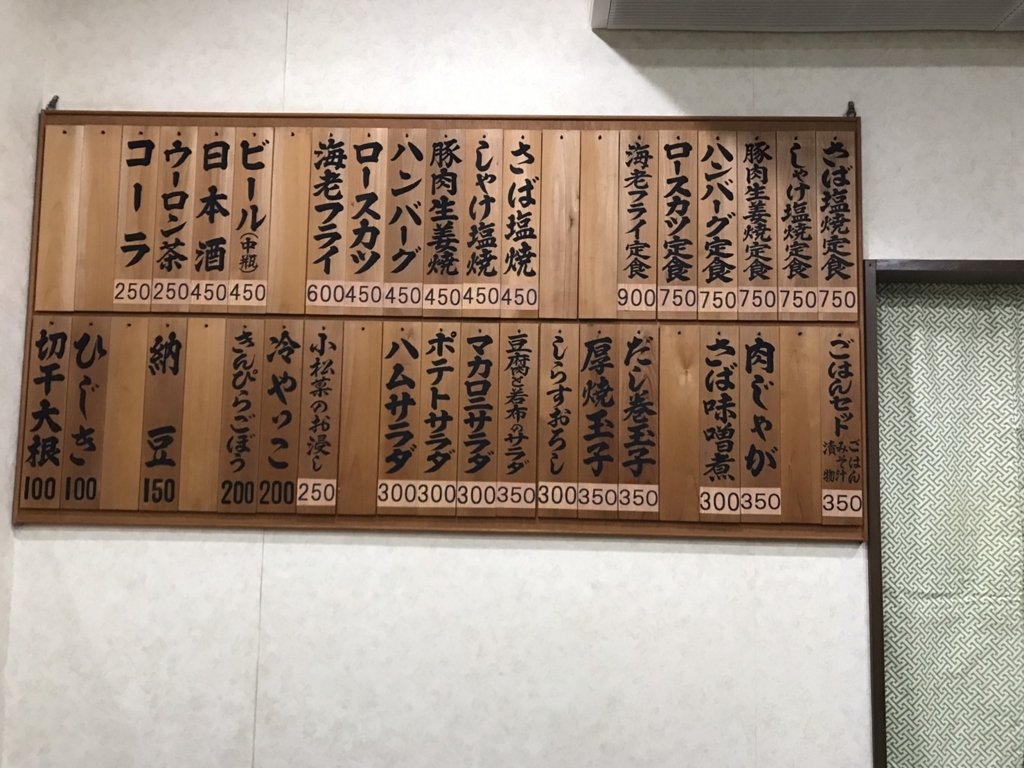 さば塩焼定食 750
しゃけ塩焼定食 750
豚肉生姜焼定食 750
ハンバーグ定食 750
ロースカツ定食 750
海老フライ定食 900
さば塩焼 450
しゃけ塩焼 450
豚肉生姜焼 450
ハンバーグ 450
ロースカツ 450
海老フライ 600
ビール(中瓶) 450
日本酒 450
ウーロン茶 250
コーラ 250
ごはんセット ごはん みそ汁 漬物 350
肉じゃが 350
さば味噌煮 300
だし巻玉子 350
厚焼玉子 350
しらすおろし 300
豆腐と若布のサラダ 350
マカロニサラダ 300
ポテトサラダ 300
ハムサラダ 300
小松菜のお浸し 250
冷やっこ 200
きんぴらごぼう 200
納豆 150
ひじき 100
切干大根 100